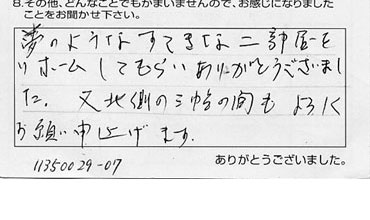 8.その他、どんなことでもかまいませんので、お感じになりました
ことをお聞かせ下さい。
夢のようなすてきな二部屋を
リホームしてもらいありがとうございまし
た。又北側の三帖の間もよろしく
お願い申上げます。
ありがとうございました。
11350029-07